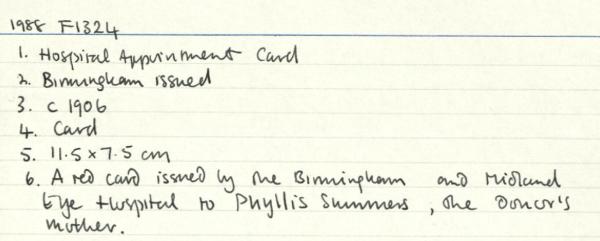 1988 F1324
1. Hospital Appointment Card
2. Birmingham issued
3. c 1906
4. Card
5. 11.5 x 7.5 cm
6. A red card issued by the Birmingham and Midland
Eye Hospital to Phyllis Summers, the donor's
mother.